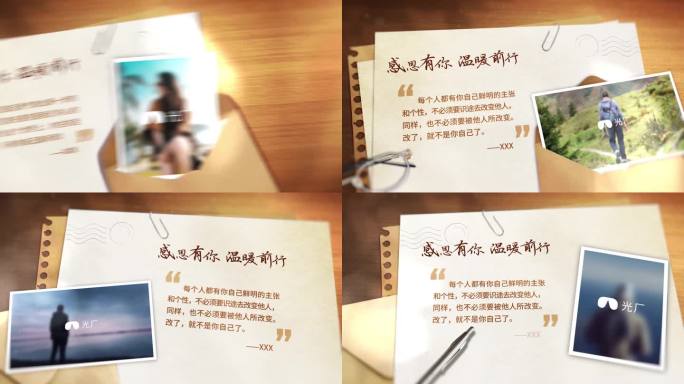 温暖前行
光厂
感恩有你 温暖前行
“ 每个人都有你自己鲜明的主张
和个性，不必须要识途去改变他人，
同样，也不必须要被他人所改变。
改了，就不是你自己了。 ”
——XXX
光厂
感恩有你 温暖前行
“ 每个人都有你自己鲜明的主张
和个性，不必须要识途去改变他人，
同样，也不必须要被他人所改变。
改了，就不是你自己了。 ”
——XXX
光厂
感恩有你 温暖前行
“ 每个人都有你自己鲜明的主张
和个性，不必须要识途去改变他人，
同样，也不必须要被他人所改变。
改了，就不是你自己了。 ”
——XXX
光厂